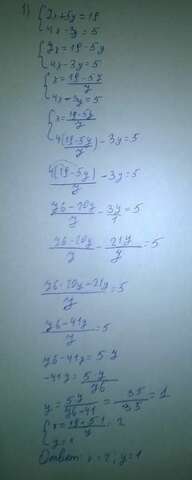 1) { 7x+5y=19
4x-3y=5
{ 7x=19-5y
4x-3y=5
{ x=(19-5y)/7
4x-3y=5
{ x=(19-5y)/7
4(19-5y)/7-3y=5
4(19-5y)/7-3y=5
(76-20y)/7-3y/1=5
(76-20y)/7-21y/7=5
(76-20y-21y)/7=5
(76-41y)/7=5
76-41y=5·7
-41y=5·7/76
y=5·7/(76-41)=35/35=1
{ x=(19-5·1)/7=2
y=1
Ответ: x=2; y=1